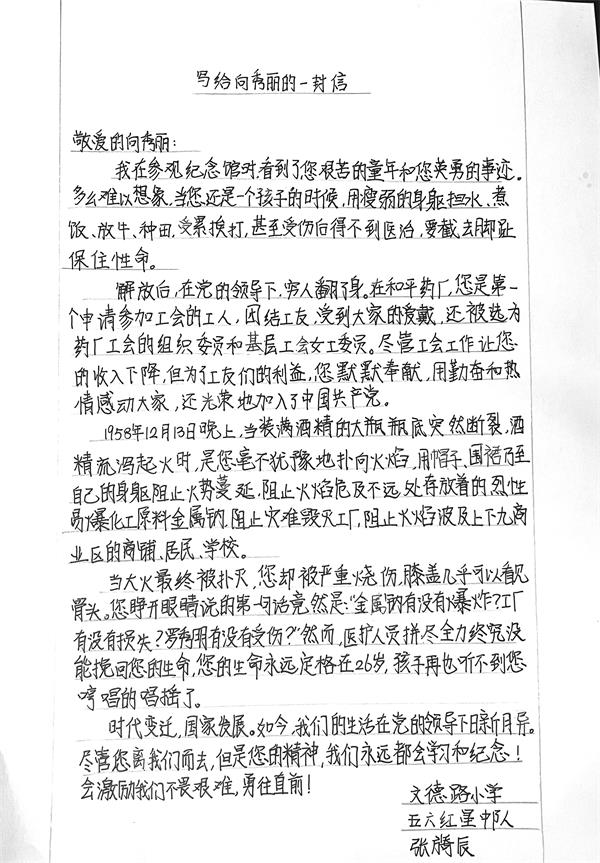 写给向秀丽的一封信
敬爱的向秀丽：
我在参观纪念馆时,看到了您艰苦的童年和您英勇的事迹。
多么难以想象,当您还是一个孩子的时候,用瘦弱的身躯担水、煮
饭、放牛、种田,受累挨打,甚至受伤后得不到医治,要截去脚趾
保住性命。
解放后,在党的领导下,穷人翻了身。在和平药厂,您是第一
个申请参加工会的工人,团结工友,受到大家的爱戴,还被选为
药厂工会的组织委员和基层工会女工委员。尽管工会工作让您
的收入下降,但为了工友们的利益,您默默奉献,用勤奋和热
情感动大家,还光荣地加入了中国共产党。
1958年12月13日晚上,当装满酒精的大瓶瓶底突然断裂,酒
精流泻起火时,是您毫不犹豫地扑向火焰,用帽子、围裙乃至
自己的身躯阻止火势蔓延,阻止火焰危及不远处存放着的烈性
易爆化工原料金属钠,阻止灾难毁灭工厂,阻止火焰波及上下九商
业区的商铺、居民、学校。
当大火最终被扑灭,您却被严重烧伤,膝盖几乎可以看见
骨头。您睁开眼睛说的第一句话竟然是:“金属钠有没有爆炸?工厂
有没有损失?罗秀明有没有受伤?”然而,医护人员拼尽全力终究没
能挽回您的生命,您的生命永远定格在26岁,孩子再也听不到您
哼唱的唱摇了。
时代变迁,国家发展。如今,我们的生活在党的领导下日新月异。
尽管您离我们而去,但是您的精神,我们永远都会学习和纪念!
会激励我们不畏艰难,勇往直前!
文德路小学
五六红星中队
张 辰